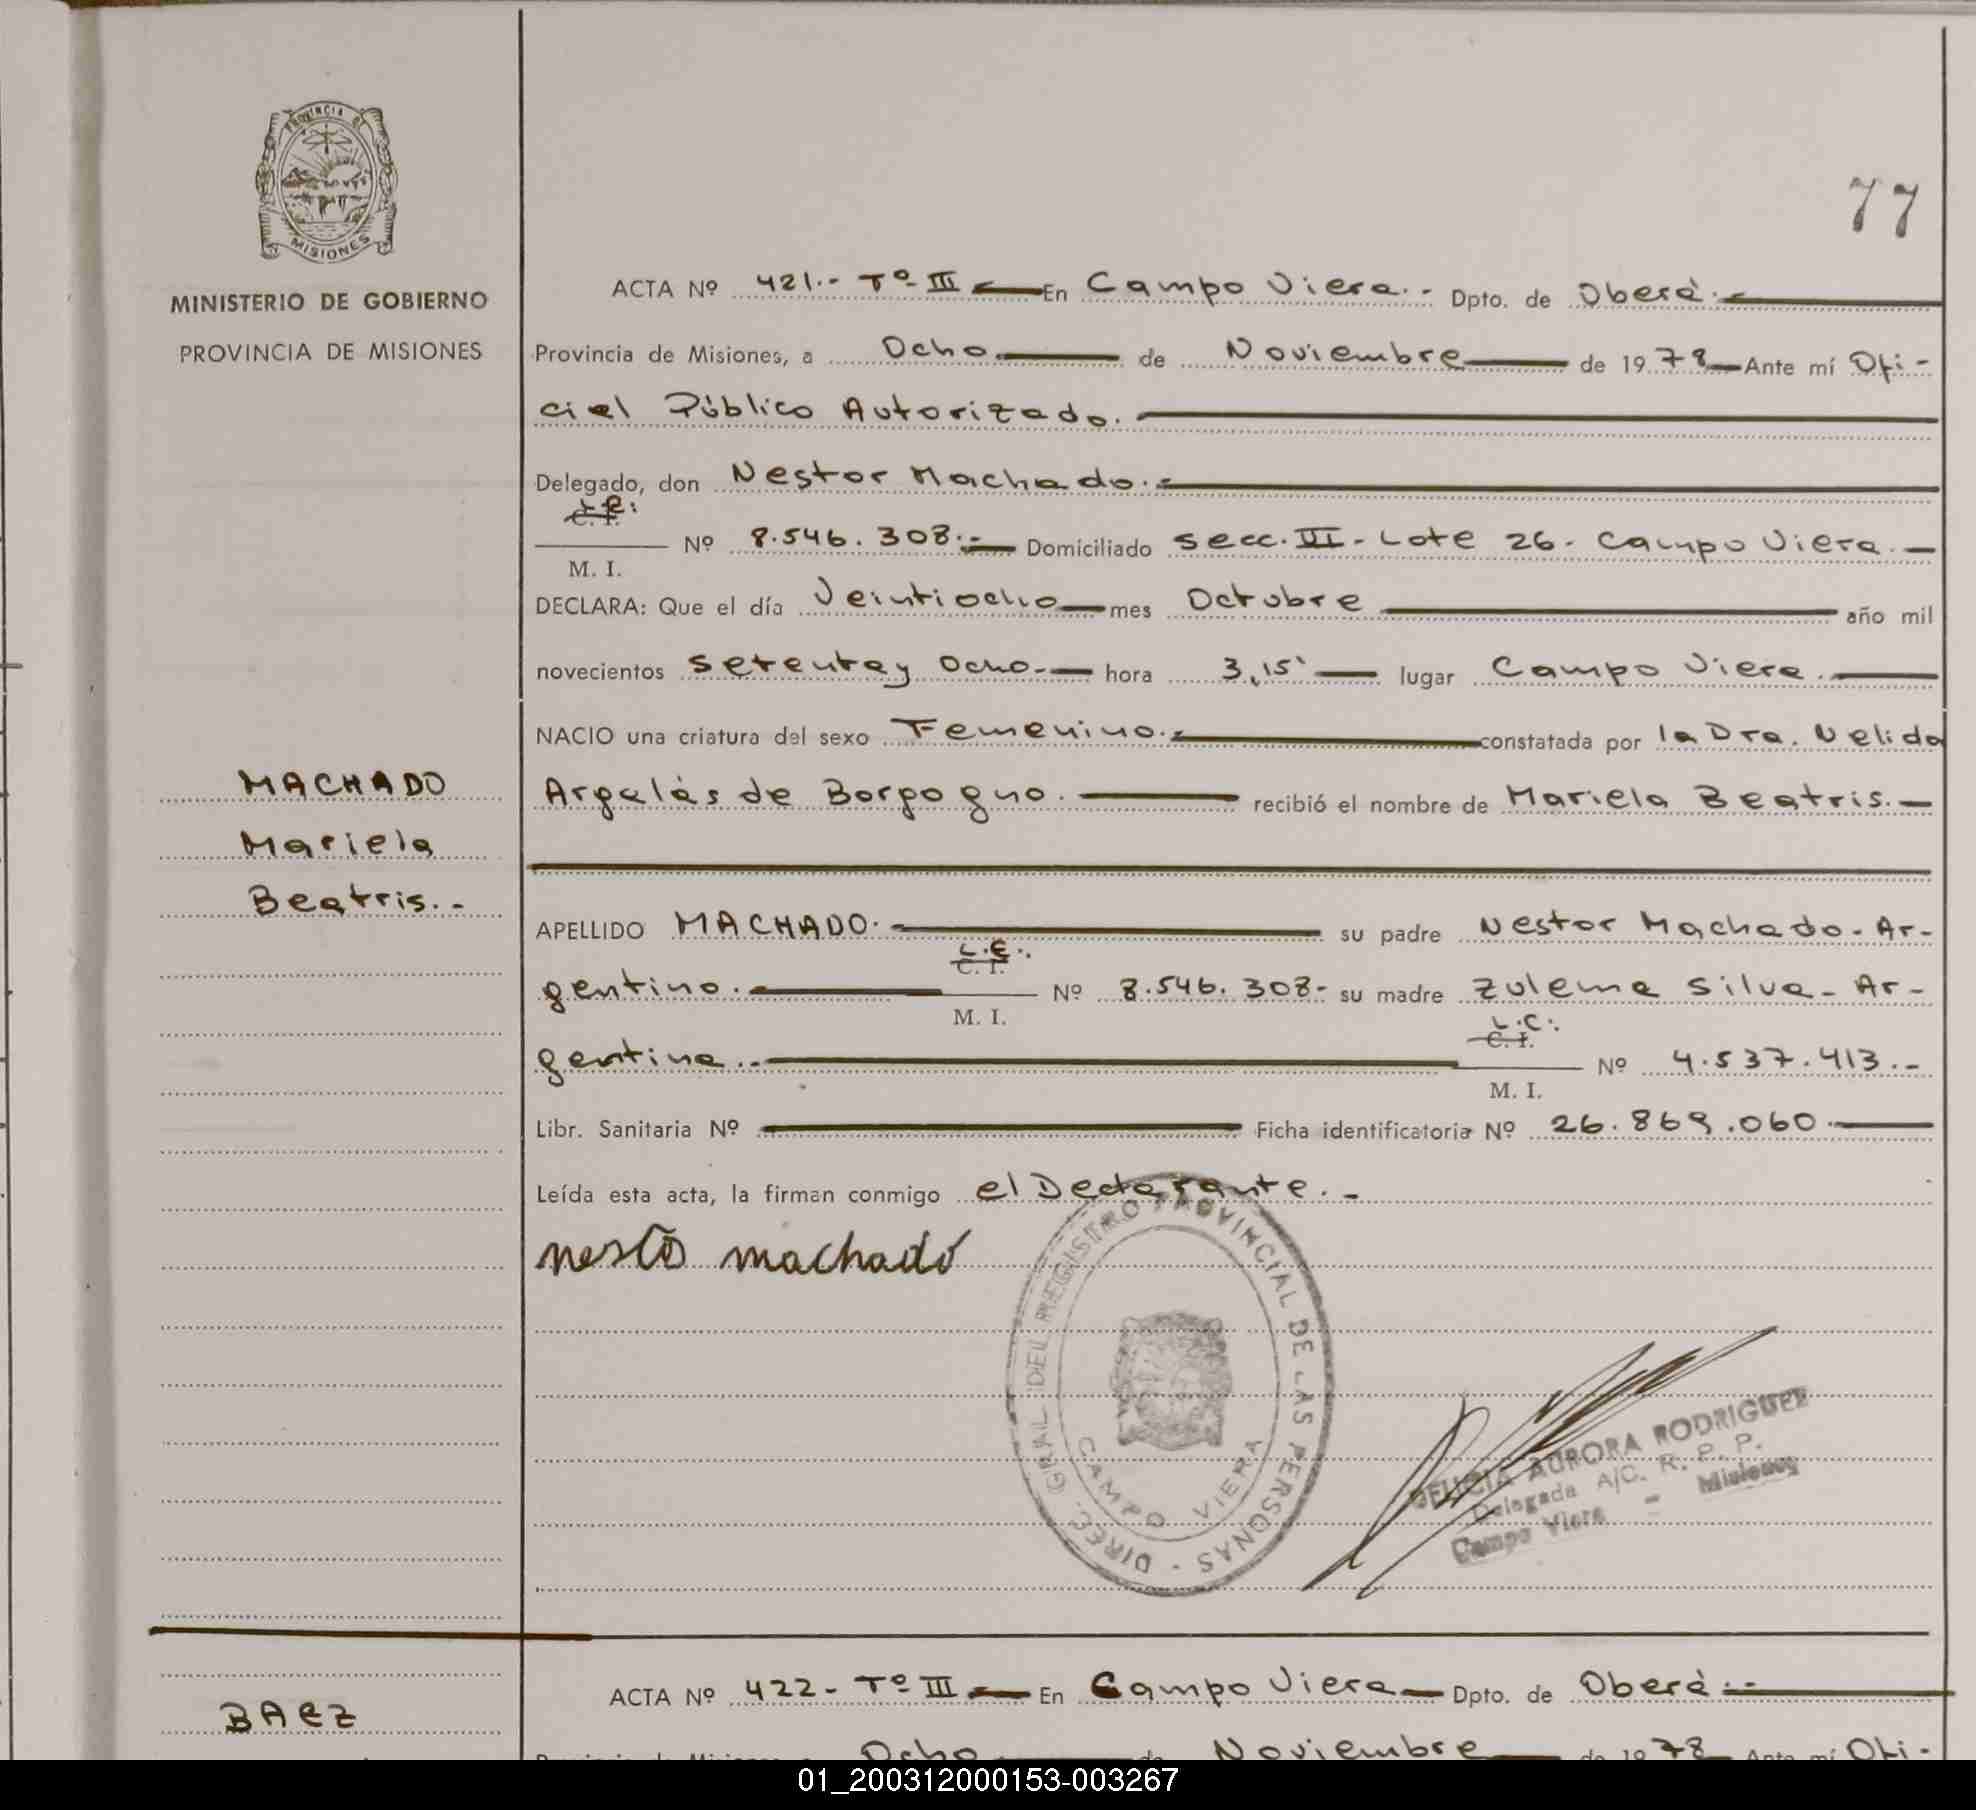 77
PROVINCIA DE
MISIONES
MINISTERIO DE GOBIERNO
PROVINCIA DE MISIONES
ACTA Nº 421.- Tº III En Campo Viera.- Dpto. de Oberá.-
Provincia de Misiones, a Ocho de Noviembre de 1978 Ante mí Ofi-
cial Público Autorizado.
Delegado, don Nestor Machado.-
C. I.
M. I.
Nº 8.546.308.- Domiciliado secc. III - Lote 26 - Campo Viera.-
DECLARA: Que el día Veintiocho mes Octubre año mil
novecientos setenta y ocho.- hora 3,15' lugar Campo Viera.
NACIO una criatura del sexo Femenino.- constatada por la Dra. Nelida
Argalás de Borgogno. recibió el nombre de Mariela Beatris.-
MACHADO
Mariela
Beatris.-
APELLIDO MACHADO.- su padre Nestor Machado - Ar-
L.E.:
C. I.
gentino. Nº 8.546.308- su madre Zulema Silva - Ar-
M. I.
L.C.:
C. I.
gentina.- Nº 4.537.413.-
M. I.
Libr. Sanitaria Nº Ficha identificatoria Nº 26.869.060.
Leída esta acta, la firman conmigo el Declarante.-
nesto machado
DIREC. GRAL. DEL REGISTRO PROVINCIAL DE LAS PERSONAS -
CAMPO VIERA
DELICIA AURORA RODRIGUEZ
Delegada A/C. R. P. P.
Campo Viera - Misiones
ACTA Nº 422 - Tº III En Campo Viera Dpto. de Oberá.-
BAEZ
Ocho de Noviembre de 1978 Ante mí Ofi-
01_200312000153-003267